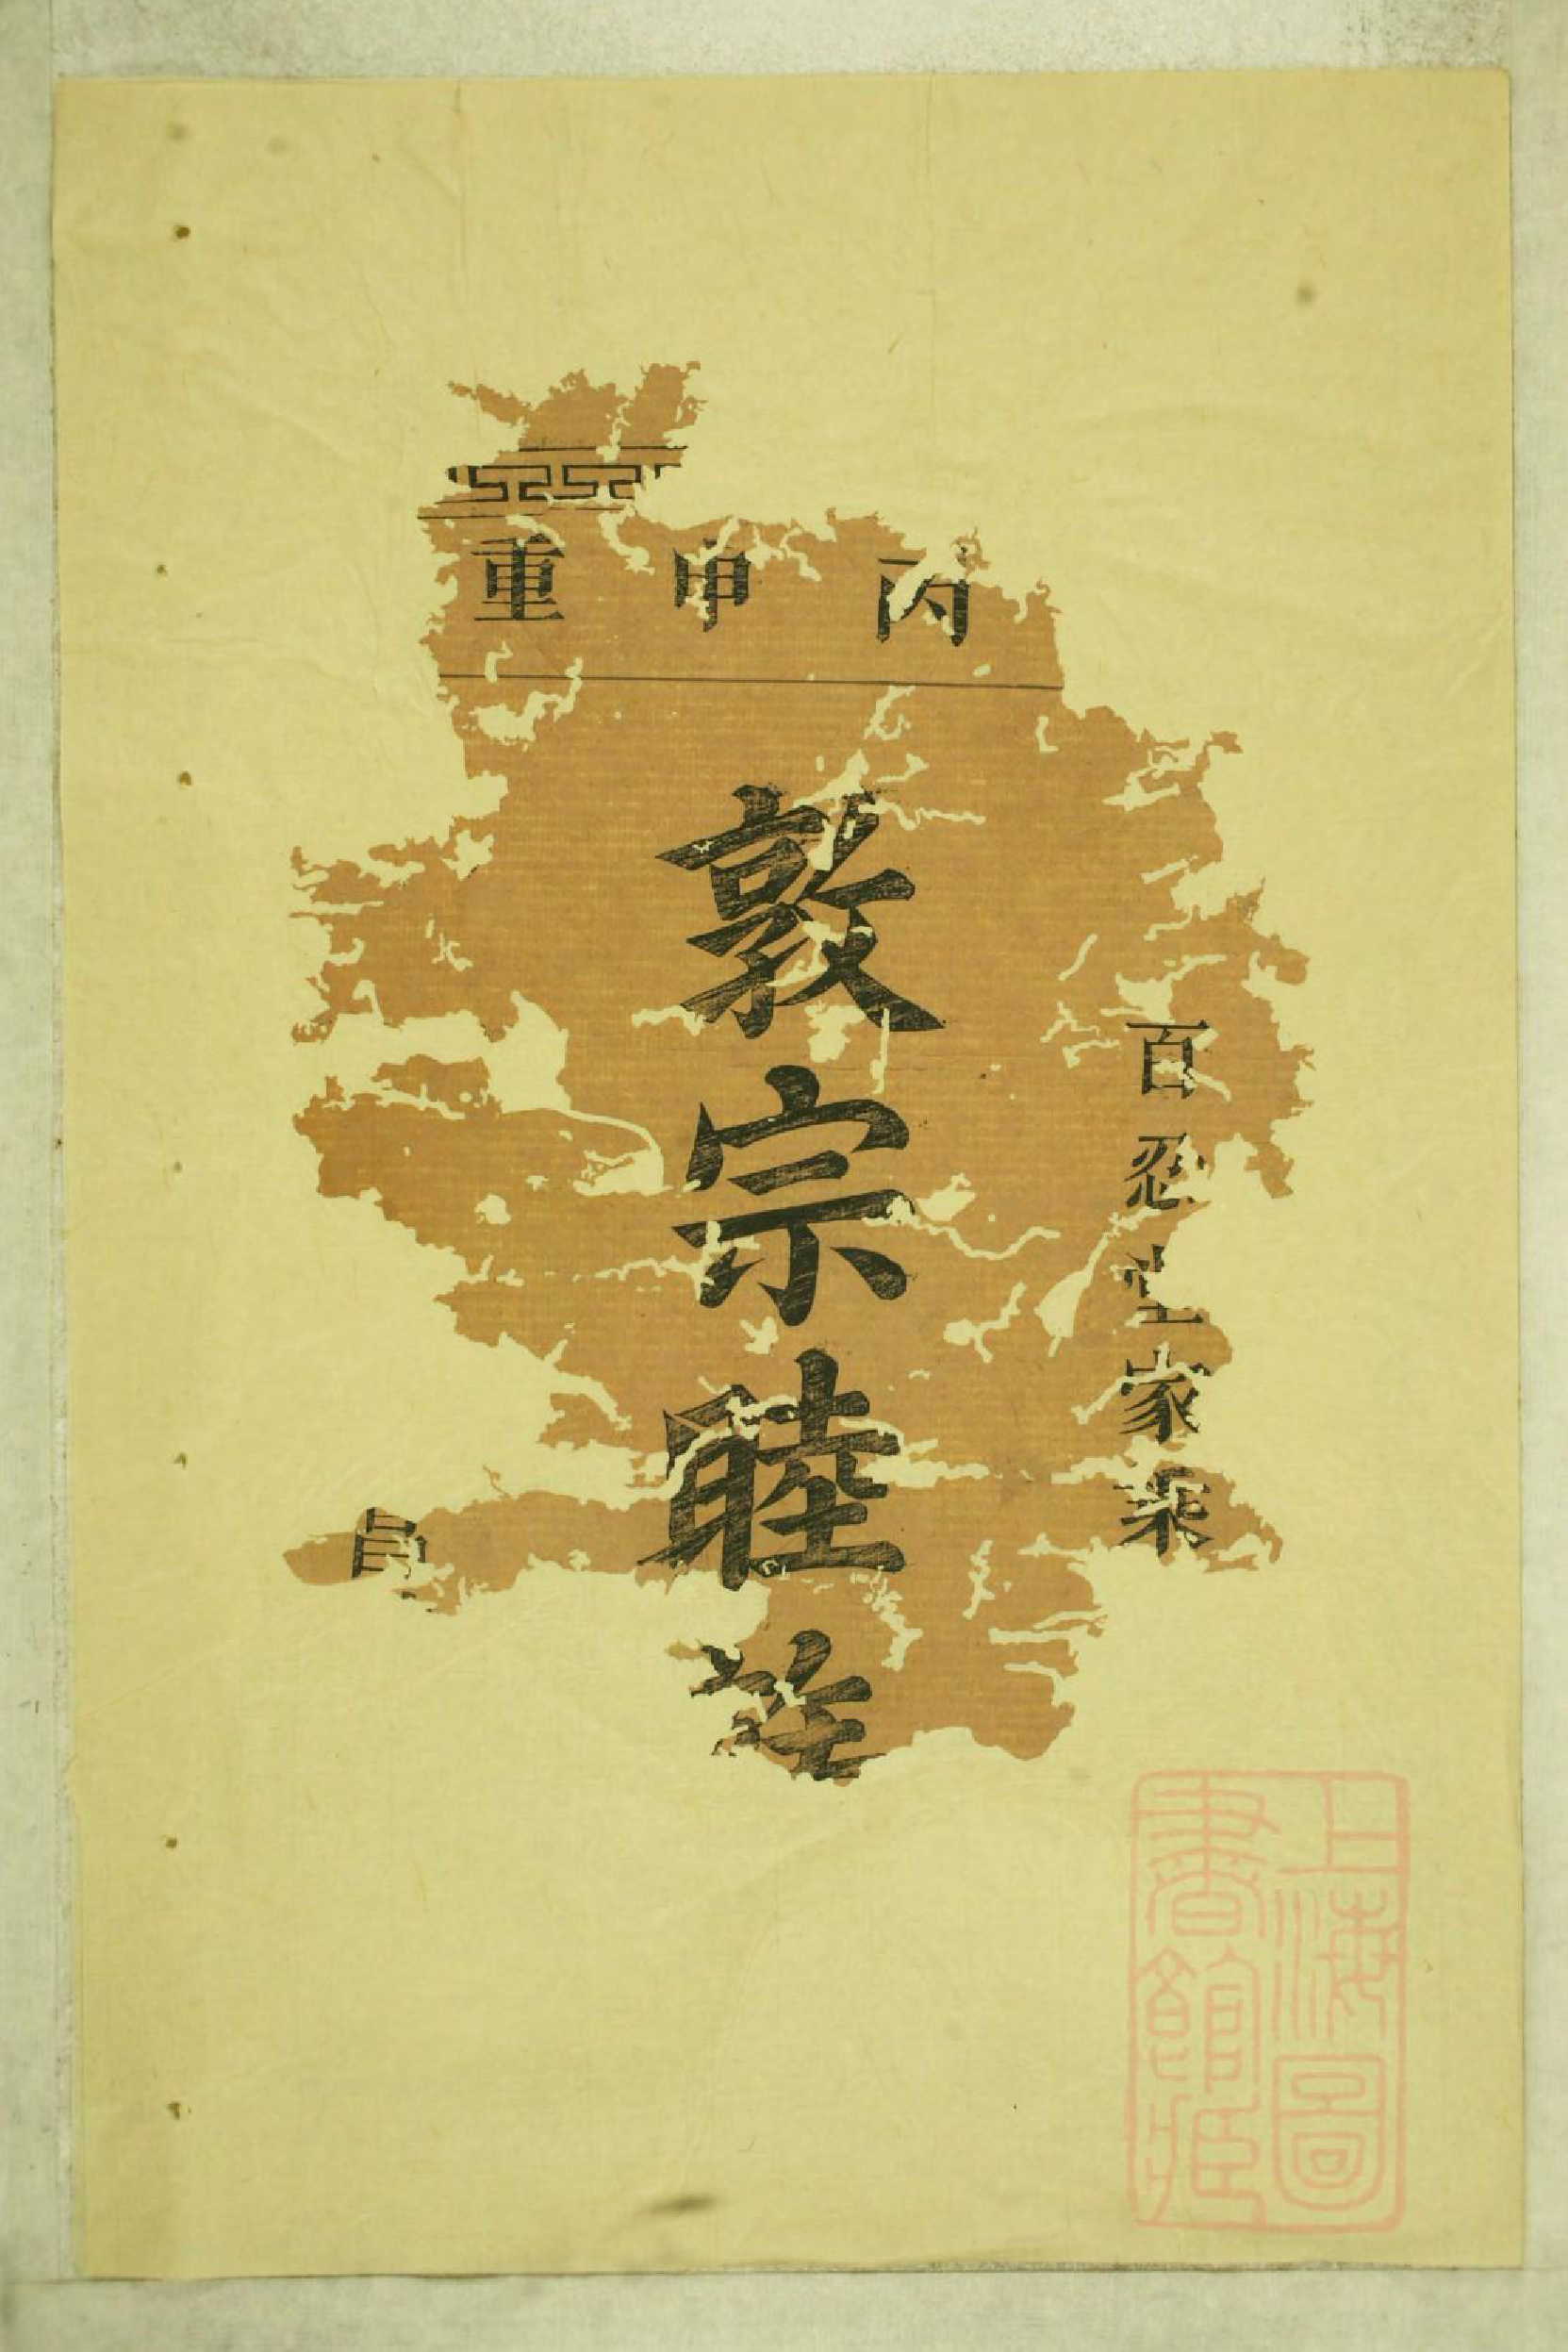 丙申重
百忍堂家乘
敦宗睦族
上海圖書館藏